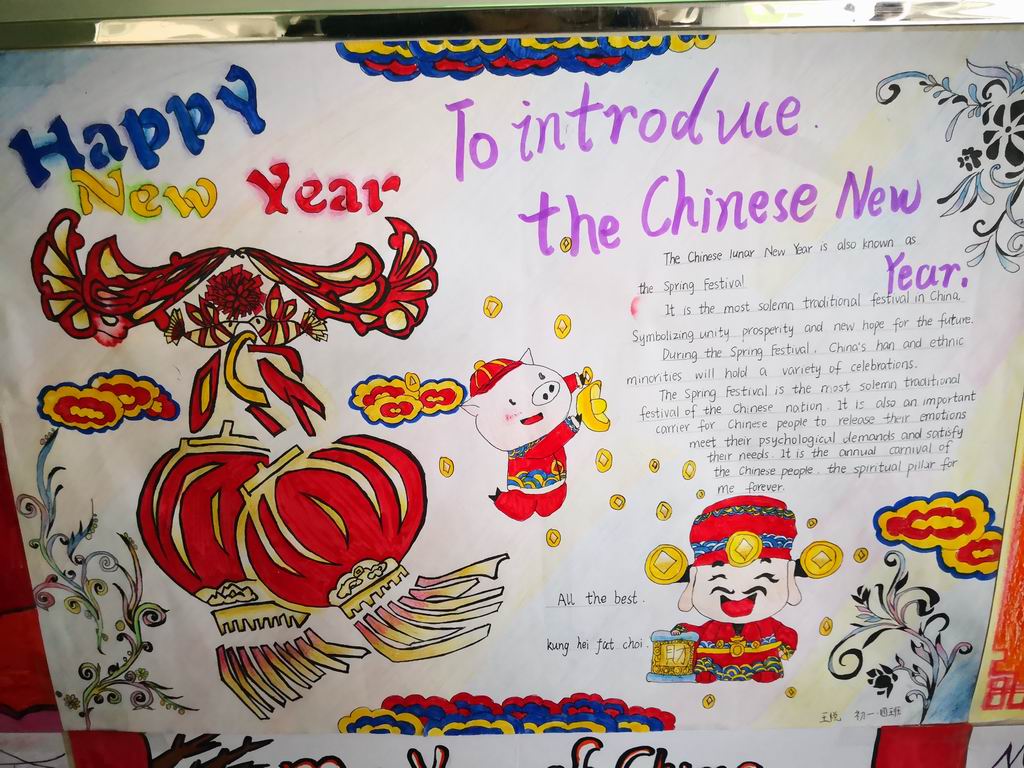 Happy
New Year
To introduce.
the Chinese New
Year.
The Chinese lunar New Year is also known as
the Spring Festival
It is the most solemn traditional festival in China.
Symbolizing unity, prosperity and new hope for the future.
During the Spring Festival, China's han and ethnic
minorities will hold a variety of celebrations.
The Spring Festival is the most solemn traditional
festival of the Chinese nation. It is also an important
carrier for Chinese people to release their emotions
meet their psychological demands and satisfy
their needs. It is the annual carnival of
the Chinese people. the spiritual pillar for
me forever.
All the best.
kung hei fat choi.
王悦 初一·四班
of China